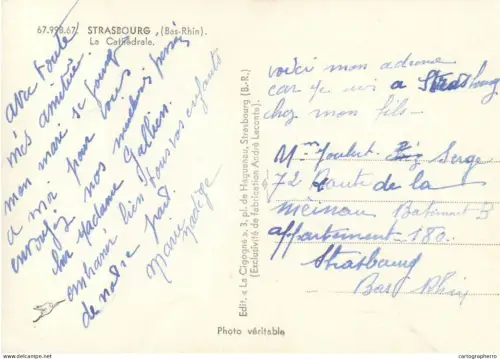 67.998.67. STRASBOURG (Bas-Rhin).
La Cathédrale.
avec toute
mes amitiée.
mon mari se joint
a moi pour vous
envoyez nos meilleurs pensées
chere Madame Gallien.
embrassé bien tous vos enfants
de notre part.
Marie
Nadège
Edit. « La Cigogne », 3, pl. de Haguenau, Strasbourg (B.-R.)
(Exclusivité de fabrication André Leconte).
voici mon adresse
car je suis a Strasbourg
chez mon fils
Mme Joubert Serge
72 route de la
meinau Batiment B
appartement 180.
Strasbourg
Bas Rhin
Photo véritable
www.delcampe.net
cartographerro